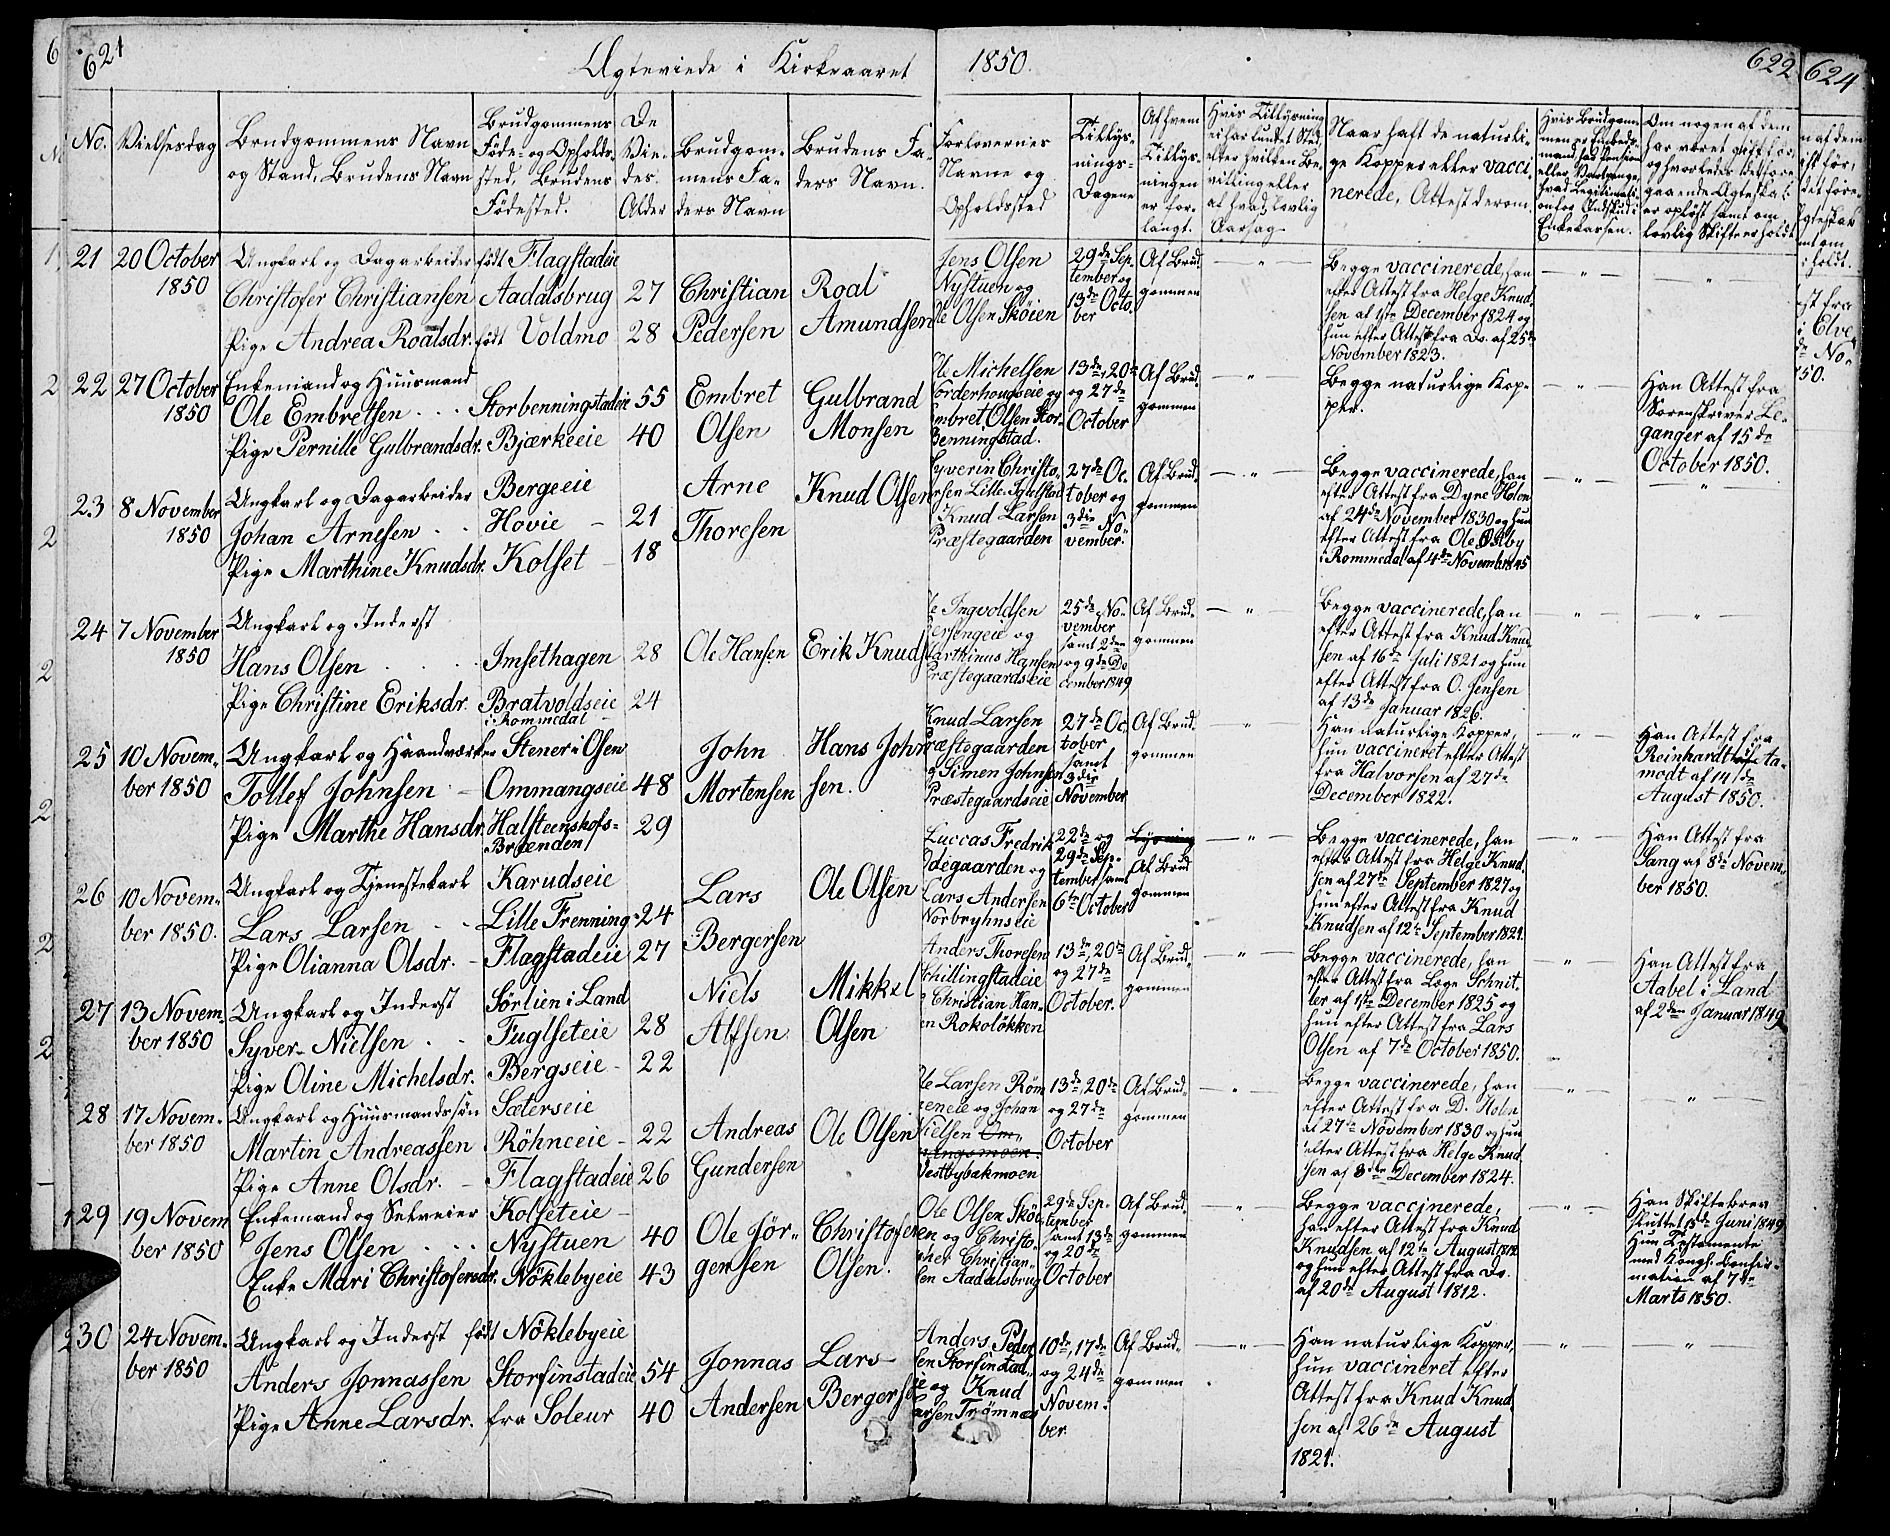 621
Ægteviede i Kirkeaaret 1850.
622
624
No.
Vielsesdag
Brudgommens Navn
og Stand, Brudens Navn
Brudgommens
Føde- og Opholds-
sted, Brudens
Fødested.
De
Vie-
des
Alder
Brudgom-
mens Fa-
ders Navn
Brudens Fa-
ders Navn.
Forlovernes
Navne og
Opholdssted
Tillys-
nings-
Dagene
Af hvem
Tillys-
ningen
er for-
langt.
Hvis Tillysning
ei har fundet Sted,
efter hvilken Be-
villing eller
af hvad lovlig
Aarsag
Naar haft de naturli-
ge Kopper eller vacci-
nerede, Attest derom.
Hvis Brudgom-
men er Embeds-
mand
hvad Legitimati-
on for Indskud i
Enkekassen.
Om nogen af dem
har været gift før,
og hvorledes det fore-
gaaende Ægteskab
er opløst samt om
lovlig Skifte er holdt
21
20 October
1850
Ungkarl og Dagarbeider
Christofer Christiansen
Pige Andrea Roalsdr.
født Flagstadeie
Aadalsbrug
født Voldmo
27
28
Christian
Pedersen
Roal
Amundsen
Jens Olsen
Nystuen og
Ole Olsen Sköien
29de Sep-
tember og
13de Octo-
ber
Af Brud-
gommen
Begge vaccinerede, han
efter Attest fra Helge Knud-
sen af 1ste December 1824 og
hun efter Attest fra Do. af 25de
November 1823.
22
27 October
1850
Enkemand og Huusmand
Ole Embretsen
Pige Pernille Gulbrandsdr.
Storbenningstadeie
Bjærkeeie
55
40
Embret
Olsen
Gulbrand
Monsen
Ole Michelsen
Norderhougseie og
Embret Olsen Stor-
Benningstad.
13de, 20de
og 27de
October
Af Brud-
gommen
Begge naturlige Kop-
per.
Han Attest fra
Sorenskriver Le-
ganger af 15de
October 1850.
23
8 November
1850
Ungkarl og Dagarbeider
Johan Arnesen
Pige Marthine Knudsdr.
Bergeeie
Hovie
Kolset
21
18
Arne
Thoresen
Knud Olsen
Syverin Christo-
Knud Larsen
Præstegaarden
27de Oc-
tober og
3die No-
vember.
Af Brud-
gommen
Begge vaccinerede, han
efter Attest fra Dyre Holen
af 24de November 1830 og hun
efter Attest fra Ole Østby
i Rommedal af 4de November 1845
24
7 November
1850
Ungkarl og Inderst
Hans Olsen
Pige Christine Eriksdr.
Imsethagen
Bratvoldseie
i Rommedal
28
24
Ole Hansen
Erik Knuds
Ole Ingvoldsen
og
Marthinus Hansen
Præstegaardseie
25de No-
vember
samt 2den
og 9de De-
cember 1849
Af Brud-
gommen
Begge vaccinerede, han
efter Attest fra Knud Knud-
sen af 16de Juli 1821 og hun
efter Attest fra O. Jensen
af 13de Januar 1826.
25
10 Novem-
ber 1850
Ungkarl og Haandværker
Tollef Johnsen
Pige Marthe Hansdr.
Stener i Osen
Ommangseie
Halsteenshofs-
Brænden
48
29
John
Mortensen
Hans John-
sen.
Knud Larsen
Præstegaarden
og Simen Johnsen
Præstegaardseie
27de Oc-
tober
samt
3die
November
Af Brud-
gommen
Han naturlige Kopper,
hun vaccineret efter Attest
fra Halvorsen af 27de
December 1822.
Han Attest fra
Reinhardt i Aa-
modt af 14de
August 1850.
26
10 Novem-
ber 1850.
Ungkarl og Tjenestekarl
Lars Larsen
Pige Olianna Olsdr.
Karudseie
Lille Frenning
Flagstadeie
24
27
Lars
Bergersen
Ole Olsen
Luccas Fredrik
Ödegaarden og
Lars Andersen
Norbryhnseie
22de og
29de Sep-
tember samt
6te October
Af Brud-
gommen
Begge vaccinerede, han
efter Attest fra Helge Knud-
sen af 27de September 1827 og
hun efter Attest fra Knud
Knudsen af 12te September 1824.
Han Attest fra
Lang af 8de Novem-
ber 1850.
27
13 Novem-
ber 1850
Ungkarl og Inderst
Syver Nielsen
Pige Oline Michelsdr.
Sørlien i Land
Fuglseteie
Bergseie
28
22
Niels
Alfsen
Mikkel
Olsen
Anders Thoresen
Skillingstadeie
og Christian Han-
sen Rokolökken
13de, 20de
og 27de
October.
Af Brud-
gommen
Begge vaccinerede, han
efter Attest fra Læge Schnit-
ler af 1ste December 1825 og
hun efter Attest fra Lars
Olsen af 7de October 1850.
Han Attest fra
Aabel i Land
af 2den Januar 1849
28
17 Novem-
ber 1850
Ungkarl og Huusmandssön
Martin Andreassen
Pige Anne Olsdr.
Sæterseie
Röhneeie
Flagstadeie
22
26
Andreas
Gundersen
Ole Olsen
Ole Larsen Röm
og Johan
Nielsen
Vestbybakmoen
13de, 20de
og 27de
October
Af Brud-
gommen
Begge vaccinerede, han
efter Attest fra D. Holen
af 27de November 1830 og hun
efter Attest fra Helge Knud-
sen af 8de December 1824.
29
19 Novem
ber 1850
Enkemand og Selveier
Jens Olsen
Enke Mari Christofersdr.
Kolseteie
Nystuen
Nöklebyeie
40
43
Ole Jör-
gensen
Christofer
Olsen.
Ole Olsen Skö-
en og Christo-
pher Christian-
sen Aadalsbrug
29de Sep-
tember
samt 13de
og 20de
October
Af Brud-
gommen
Begge vaccinerede,
han efter Attest fra Knud
Knudsen af 12te August 1812
og hun efter Attest fra Do.
af 20de August 1812.
Han Skiftebrev
sluttet 15de Juni 1849
Hun Testamente
med Kongl. Confir-
mation af 7de
Marts 1850.
30
24 Novem-
ber 1850
Ungkarl og Inderst
Anders Jonnassen
Pige Anne Larsdr.
født Nöklebyeie
Storfinstadeie
fra Soleur
54
40
Jonnas
Andersen
Lars
Bergersen
Anders Peder-
sen Storfinstad-
eie og Knud
Larsen Trömnes
10de, 17de
og 24de
Novem-
ber
Af Brud-
gommen
Han naturlige Kopper,
hun vaccineret efter
Attest fra Knud Knud-
sen af 26de August
1821.